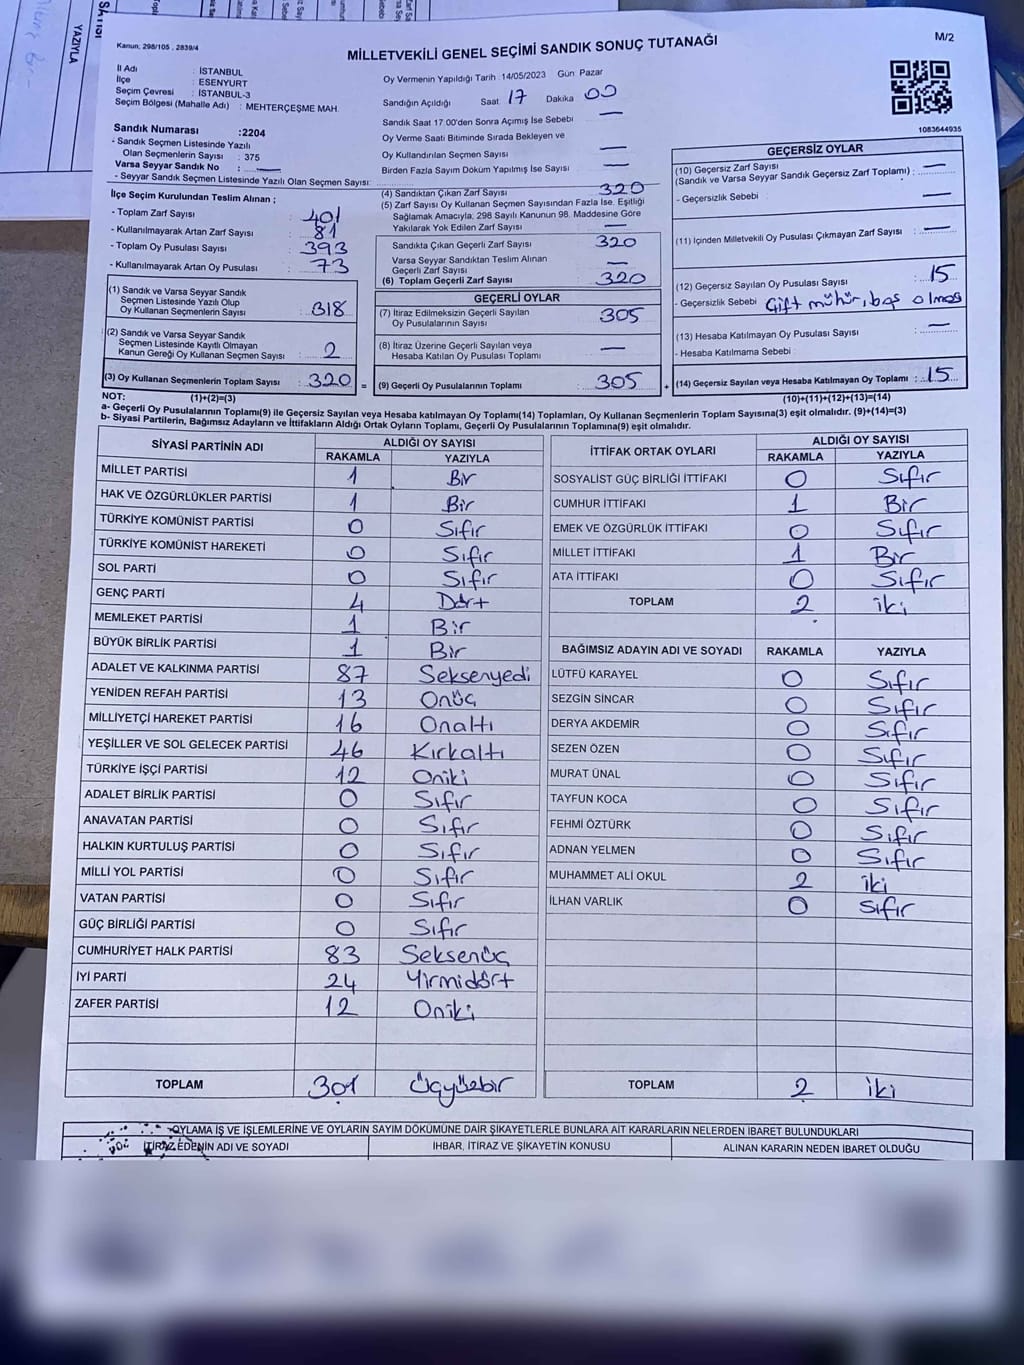 Kanun; 298/105 , 2839/4
MİLLETVEKİLİ GENEL SEÇİMİ SANDIK SONUÇ TUTANAĞI
M/2
İl Adı : İSTANBUL
İlçe : ESENYURT
Seçim Çevresi : İSTANBUL-3
Seçim Bölgesi (Mahalle Adı) : MEHTERÇEŞME MAH.
Sandık Numarası :2204
- Sandık Seçmen Listesinde Yazılı
Olan Seçmenlerin Sayısı : 375
Varsa Seyyar Sandık No : —
- Seyyar Sandık Seçmen Listesinde Yazılı Olan Seçmen Sayısı:
Oy Vermenin Yapıldığı Tarih :14/05/2023 Gün: Pazar
Sandığın Açıldığı Saat 17 Dakika 00
Sandık Saat 17:00'den Sonra Açımış İse Sebebi —
Oy Verme Saati Bitiminde Sırada Bekleyen ve
Oy Kullandırılan Seçmen Sayısı —
Birden Fazla Sayım Döküm Yapılmış İse Sayısı —
1083644935
İlçe Seçim Kurulundan Teslim Alınan ;
- Toplam Zarf Sayısı : 401
- Kullanılmayarak Artan Zarf Sayısı : 81
- Toplam Oy Pusulası Sayısı : 393
- Kullanılmayarak Artan Oy Pusulası : 73
(1) Sandık ve Varsa Seyyar Sandık
Seçmen Listesinde Yazılı Olup
Oy Kullanan Seçmenlerin Sayısı : 318
(2) Sandık ve Varsa Seyyar Sandık
Seçmen Listesinde Kayıtlı Olmayan
Kanun Gereği Oy Kullanan Seçmen Sayısı : 2
(3) Oy Kullanan Seçmenlerin Toplam Sayısı : 320
(4) Sandıktan Çıkan Zarf Sayısı 320
(5) Zarf Sayısı Oy Kullanan Seçmen Sayısından Fazla İse, Eşitliği
Sağlamak Amacıyla; 298 Sayılı Kanunun 98. Maddesine Göre
Yakılarak Yok Edilen Zarf Sayısı —
Sandıkta Çıkan Geçerli Zarf Sayısı 320
Varsa Seyyar Sandıktan Teslim Alınan
Geçerli Zarf Sayısı —
(6) Toplam Geçerli Zarf Sayısı 320
GEÇERLİ OYLAR
(7) İtiraz Edilmeksizin Geçerli Sayılan
Oy Pusulalarının Sayısı 305
(8) İtiraz Üzerine Geçerli Sayılan veya
Hesaba Katılan Oy Pusulası Toplamı —
= (9) Geçerli Oy Pusulalarının Toplamı 305 +
GEÇERSİZ OYLAR
(10) Geçersiz Zarf Sayısı
(Sandık ve Varsa Seyyar Sandık Geçersiz Zarf Toplamı) : —
- Geçersizlik Sebebi : —
(11) İçinden Milletvekili Oy Pusulası Çıkmayan Zarf Sayısı : —
(12) Geçersiz Sayılan Oy Pusulası Sayısı : 15
- Geçersizlik Sebebi Çift mühür, boş olması
(13) Hesaba Katılmayan Oy Pusulası Sayısı : —
- Hesaba Katılmama Sebebi :
(14) Geçersiz Sayılan veya Hesaba Katılmayan Oy Toplamı : 15
NOT: (1)+(2)=(3)
(10)+(11)+(12)+(13)=(14)
a- Geçerli Oy Pusulalarının Toplamı(9) ile Geçersiz Sayılan veya Hesaba katılmayan Oy Toplamı(14) Toplamları, Oy Kullanan Seçmenlerin Toplam Sayısına(3) eşit olmalıdır. (9)+(14)=(3)
b- Siyasi Partilerin, Bağımsız Adayların ve İttifakların Aldığı Ortak Oyların Toplamı, Geçerli Oy Pusulalarının Toplamına(9) eşit olmalıdır.
SİYASİ PARTİNİN ADI ALDIĞI OY SAYISI
RAKAMLA YAZIYLA
MİLLET PARTİSİ 1 Bir
HAK VE ÖZGÜRLÜKLER PARTİSİ 1 Bir
TÜRKİYE KOMÜNİST PARTİSİ 0 Sıfır
TÜRKİYE KOMÜNİST HAREKETİ 0 Sıfır
SOL PARTİ 0 Sıfır
GENÇ PARTİ 4 Dört
MEMLEKET PARTİSİ 1 Bir
BÜYÜK BİRLİK PARTİSİ 1 Bir
ADALET VE KALKINMA PARTİSİ 87 Seksenyedi
YENİDEN REFAH PARTİSİ 13 Onüç
MİLLİYETÇİ HAREKET PARTİSİ 16 Onaltı
YEŞİLLER VE SOL GELECEK PARTİSİ 46 Kırkaltı
TÜRKİYE İŞÇİ PARTİSİ 12 Oniki
ADALET BİRLİK PARTİSİ 0 Sıfır
ANAVATAN PARTİSİ 0 Sıfır
HALKIN KURTULUŞ PARTİSİ 0 Sıfır
MİLLİ YOL PARTİSİ 0 Sıfır
VATAN PARTİSİ 0 Sıfır
GÜÇ BİRLİĞİ PARTİSİ 0 Sıfır
CUMHURİYET HALK PARTİSİ 83 Seksenüç
İYİ PARTİ 24 Yirmidört
ZAFER PARTİSİ 12 Oniki
TOPLAM 301 Üçyüzbir
İTTİFAK ORTAK OYLARI ALDIĞI OY SAYISI
RAKAMLA YAZIYLA
SOSYALİST GÜÇ BİRLİĞİ İTTİFAKI 0 Sıfır
CUMHUR İTTİFAKI 1 Bir
EMEK VE ÖZGÜRLÜK İTTİFAKI 0 Sıfır
MİLLET İTTİFAKI 1 Bir
ATA İTTİFAKI 0 Sıfır
TOPLAM 2 iki
BAĞIMSIZ ADAYIN ADI VE SOYADI RAKAMLA YAZIYLA
LÜTFÜ KARAYEL 0 Sıfır
SEZGİN SİNCAR 0 Sıfır
DERYA AKDEMİR 0 Sıfır
SEZEN ÖZEN 0 Sıfır
MURAT ÜNAL 0 Sıfır
TAYFUN KOCA 0 Sıfır
FEHMİ ÖZTÜRK 0 Sıfır
ADNAN YELMEN 0 Sıfır
MUHAMMET ALİ OKUL 2 iki
İLHAN VARLIK 0 Sıfır
TOPLAM 2 iki
OYLAMA İŞ VE İŞLEMLERİNE VE OYLARIN SAYIM DÖKÜMÜNE DAİR ŞİKAYETLERLE BUNLARA AİT KARARLARIN NELERDEN İBARET BULUNDUKLARI
İTİRAZ EDENİN ADI VE SOYADI İHBAR, İTİRAZ VE ŞİKAYETİN KONUSU ALINAN KARARIN NEDEN İBARET OLDUĞU
YAZIYLA